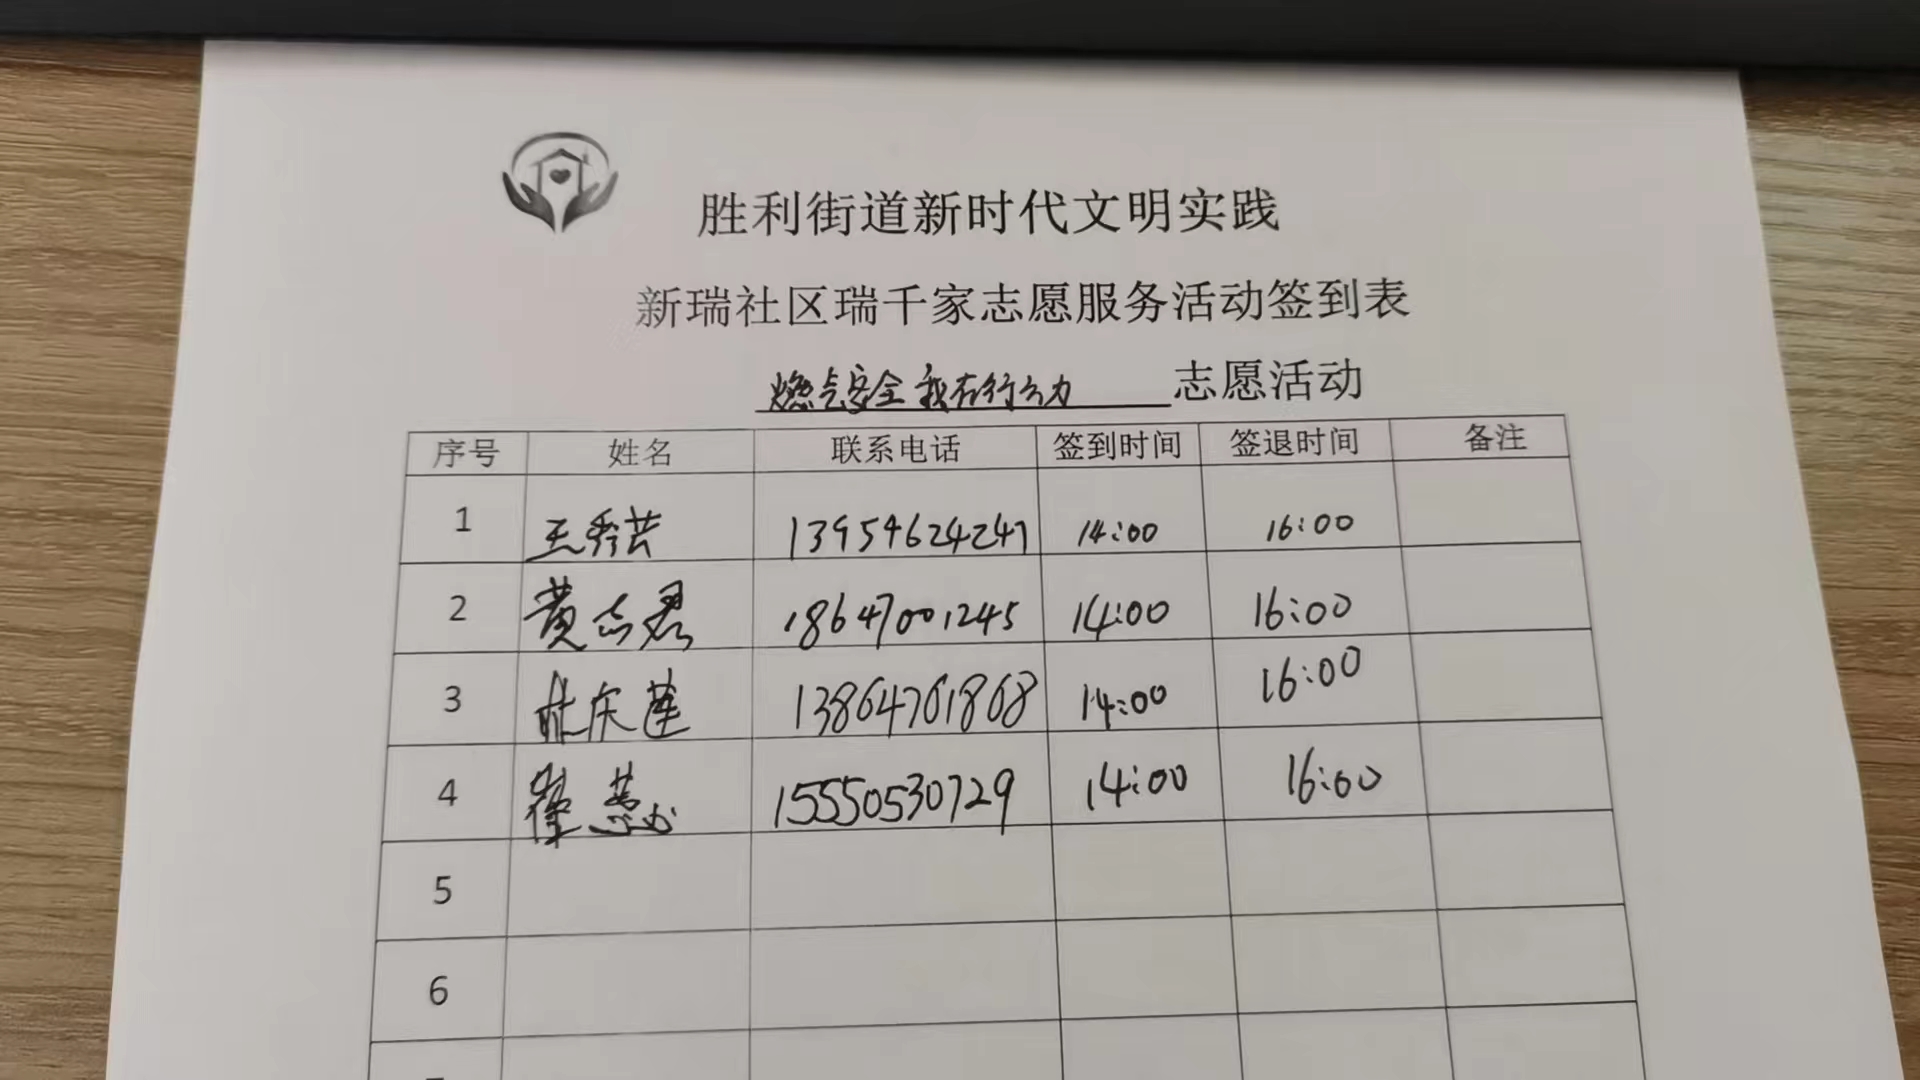 胜利街道新时代文明实践
新瑞社区瑞千家志愿服务活动签到表
燃气安全 我在行动 志愿活动
序号 姓名 联系电话 签到时间 签退时间 备注
1 王秀芸 13954624247 14:00 16:00
2 黄志君 18647001245 14:00 16:00
3 杜庆莲 13864761868 14:00 16:00
4 崔慧 15550530729 14:00 16:00
5
6